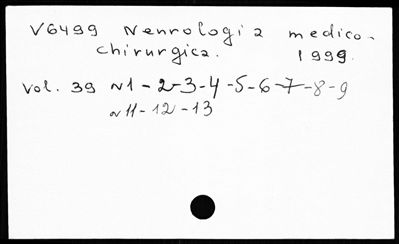 V6499 Neurologia medico-
chirurgica. 1999.
Vol. 39 N1-2-3-4-5-6-7-8-9
N11-12-13